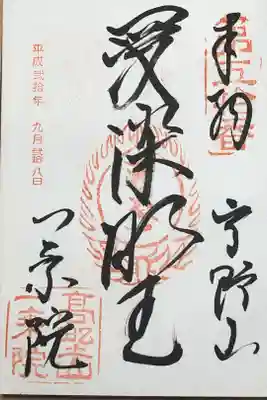 奉拝
高野山
愛染明王
一乗院
平成弐拾年 九月弐拾八日